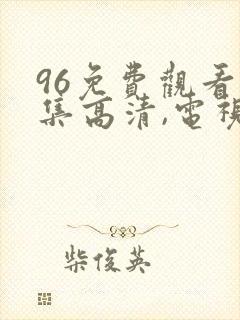 96免費觀看
集高清,電視
柴俊英